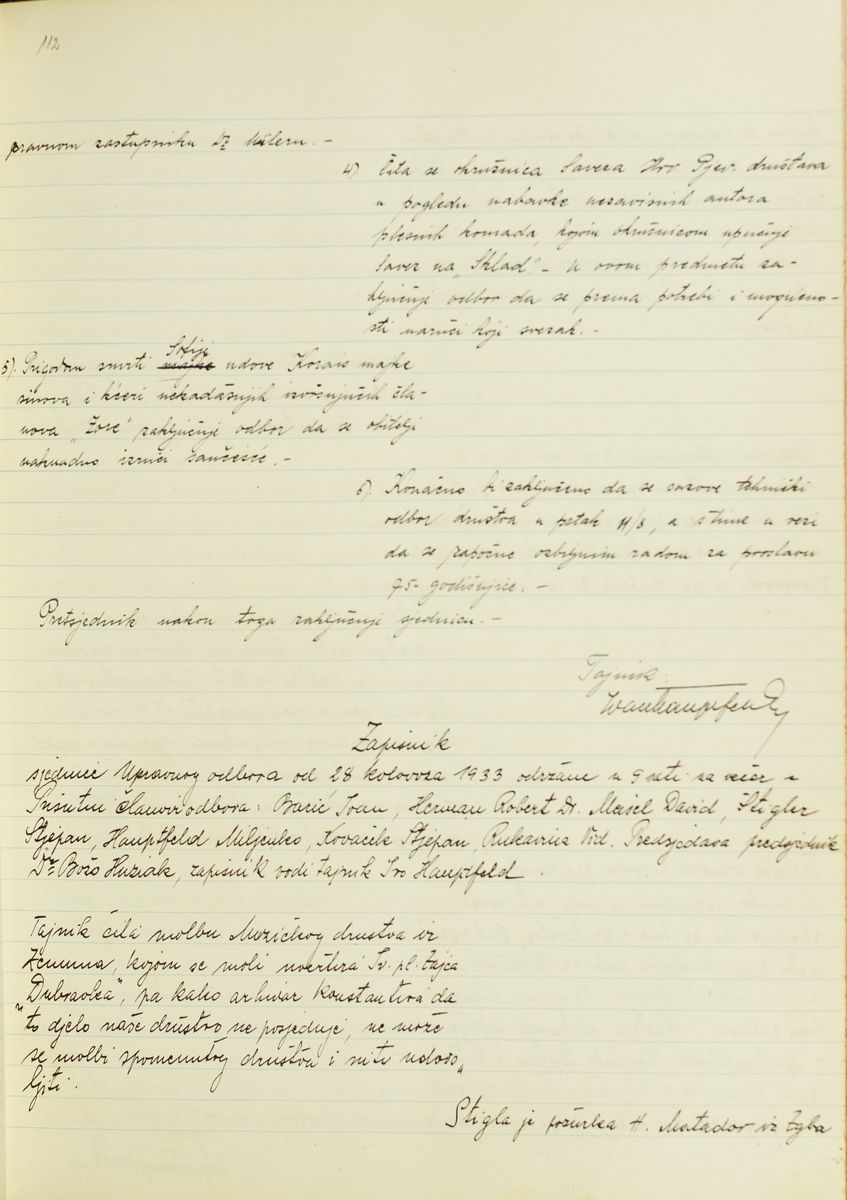 112
pravnom zastupniku Dr Mileru. –
4) Čita se okružnica Saveza Hrv. Pjev. društava
u pogledu nabavke nezavisnih autora
plesnih komada, kojom okružnicom upućuje
Savez na "Sklad" – U ovom predmetu za-
ključuje odbor da se prema potrebi i mogućno-
sti naruči koji svezak. –
5). Prigodom smrti Sofije udove Korais majke
sinova i kćeri nekadašnjih izvršujućih čla-
nova "Zore" zaključuje odbor da se obitelji
naknadno izruči saučešće. –
6). Konačno bi zaključeno da se sazove tehnički
odbor društva u petak 11/8, a s time u vezi
da se započne ozbiljnim radom za proslavu
75-godišnjice. –
Pretsjednik nakon toga zaključuje sjednicu. –
Tajnik:
Ivan Hauptfeld
Zapisnik
sjednice Upravnog odbora od 28 kolovoza 1933 održane u 9 sati na večer –
Prisutni članovi odbora: Barić Ivan, Herman Robert Dr. Meisel David, Štigler
Stjepan, Hauptfeld Miljenko, Kovaček Stjepan, Rukavina Vid. Predsjedava predsjednik
Dr Božo Huziak, zapisnik vodi tajnik Ivo Hauptfeld.
Tajnik čita molbu Muzičkog društva iz
Zemuna, kojom se moli uvertira Iv. pl. Zajca
"Dubravka", pa kako arhivar konstantira da
to djelo naše društvo ne posjeduje, ne može
se molbi spomenutog društva i niti udovo„
ljiti.
Stigla je požurka H. Matador iz Zgba